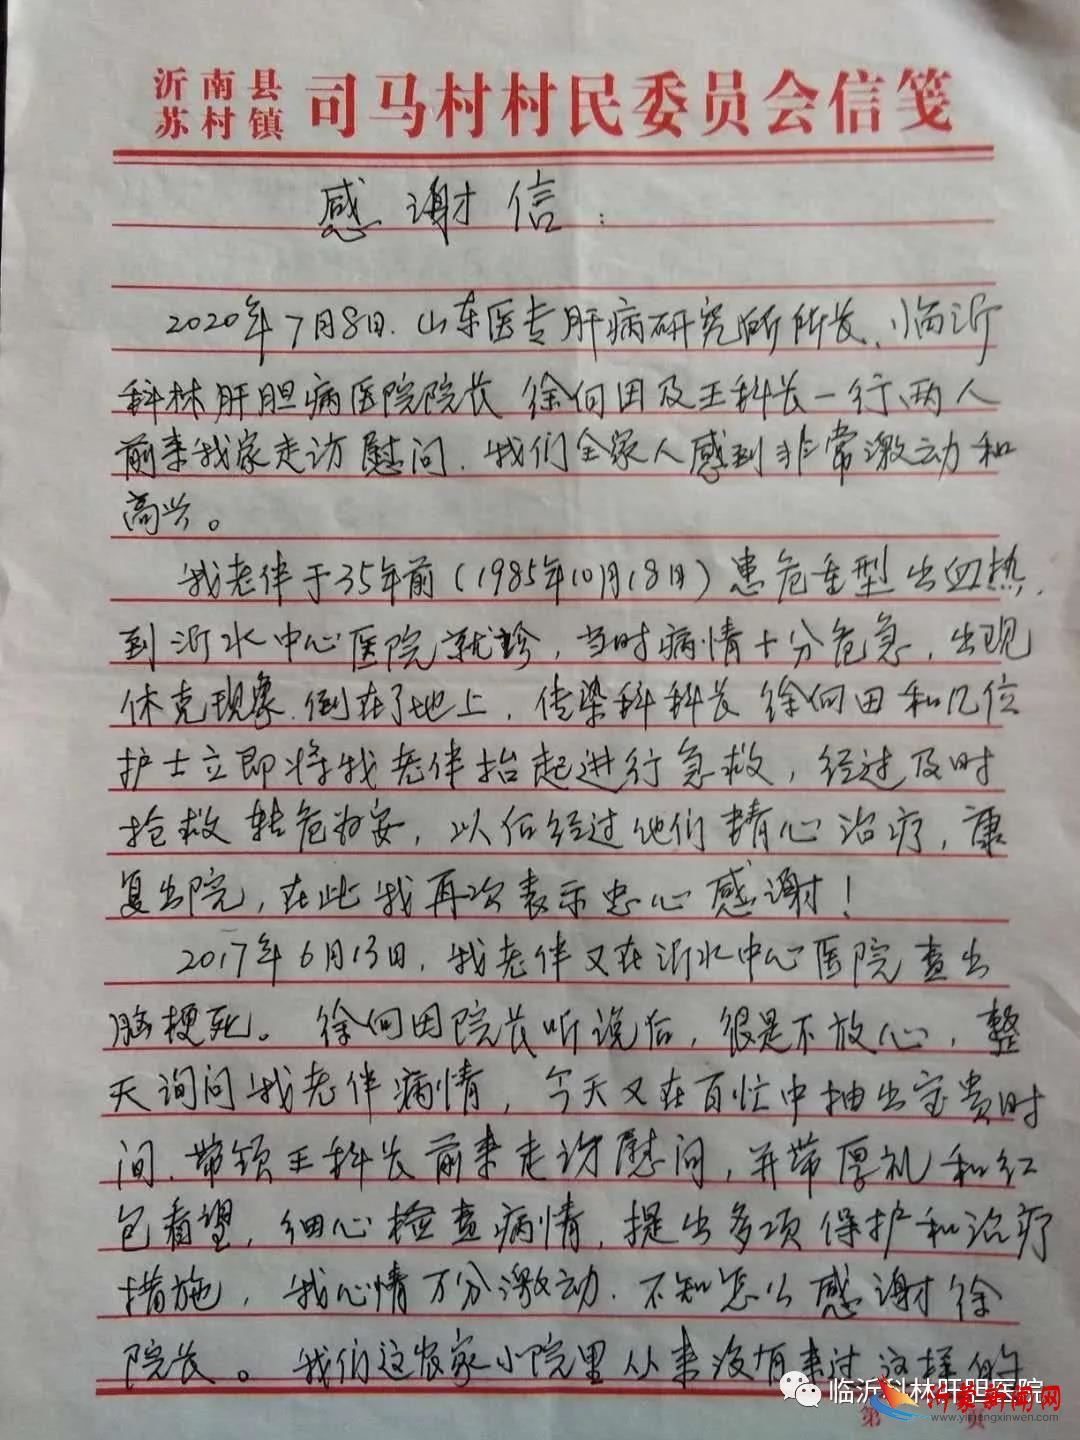 沂南县
苏村镇
司马村村民委员会信笺
感谢信：
2020年7月8日.山东医专肝病研究所所长、临沂
科林肝胆病医院院长 徐向田及王科长一行两人
前来我家走访慰问.我们全家人感到非常激动和
高兴。
我老伴于35年前(1985年10月18日)患危重型出血热,
到沂水中心医院就诊,当时病情十分危急,出现
休克现象.倒在了地上,传染科科长 徐向田和几位
护士立即将我老伴抬起进行急救,经过及时
抢救 转危为安,以后经过他们精心治疗,康
复出院,在此我再次表示忠心感谢!
2017年6月13日,我老伴又在沂水中心医院查出
脑梗死。徐向田院长听说后,很是不放心,整
天询问我老伴病情,今天又在百忙中抽出宝贵时
间.带领王科长前来走访慰问,并带厚礼和红
包看望,细心检查病情,提出多项保护和治疗
措施,我心情万分激动.不知怎么感谢徐
院长。我们这农家小院里从来没有来过这样的
临沂科林肝胆医院
沂蒙新闻网
www.yimengxinwen.com
第 页